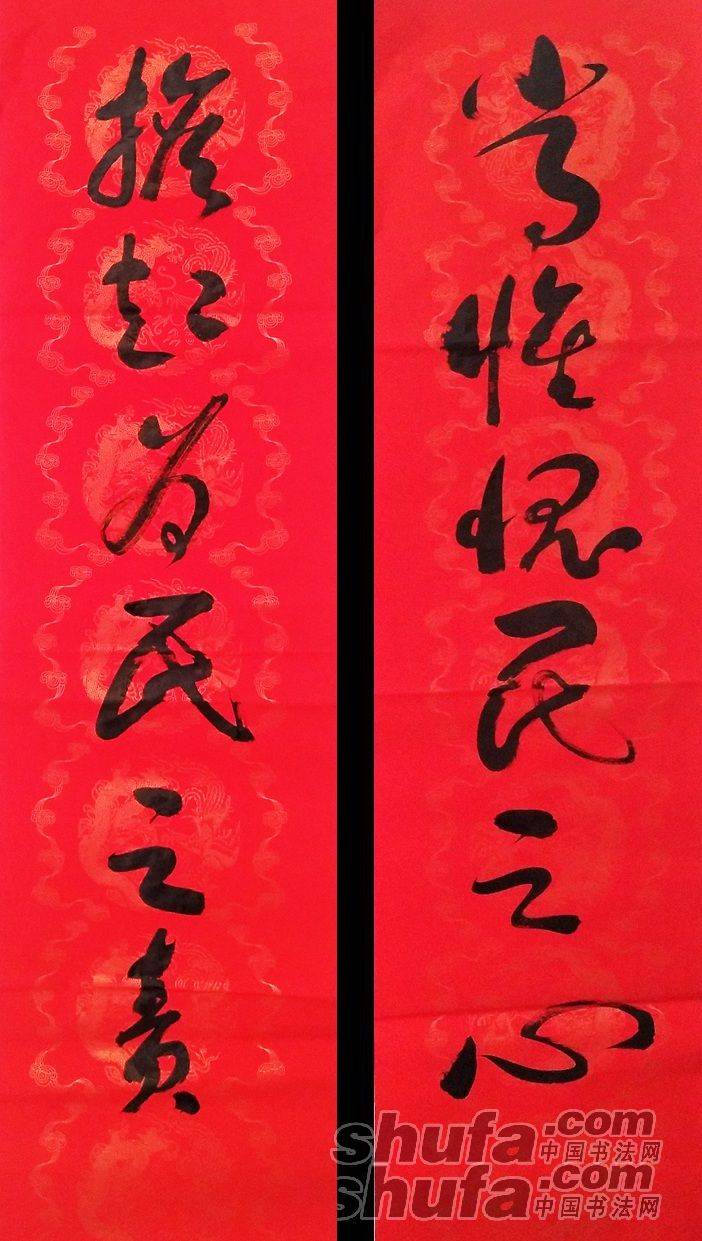 常惟愧民之心
担起为民之责
shufa.com
中国书法网
shufa.com
中国书法网